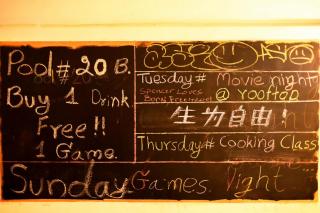 Pool # 20 B.
Buy 1 Drink
Free!!
1 Game.
Tuesday# Movie night
Spencer Loves
@ rooftop
生为自由!
Thursday# Cooking Class
Sunday Games Night